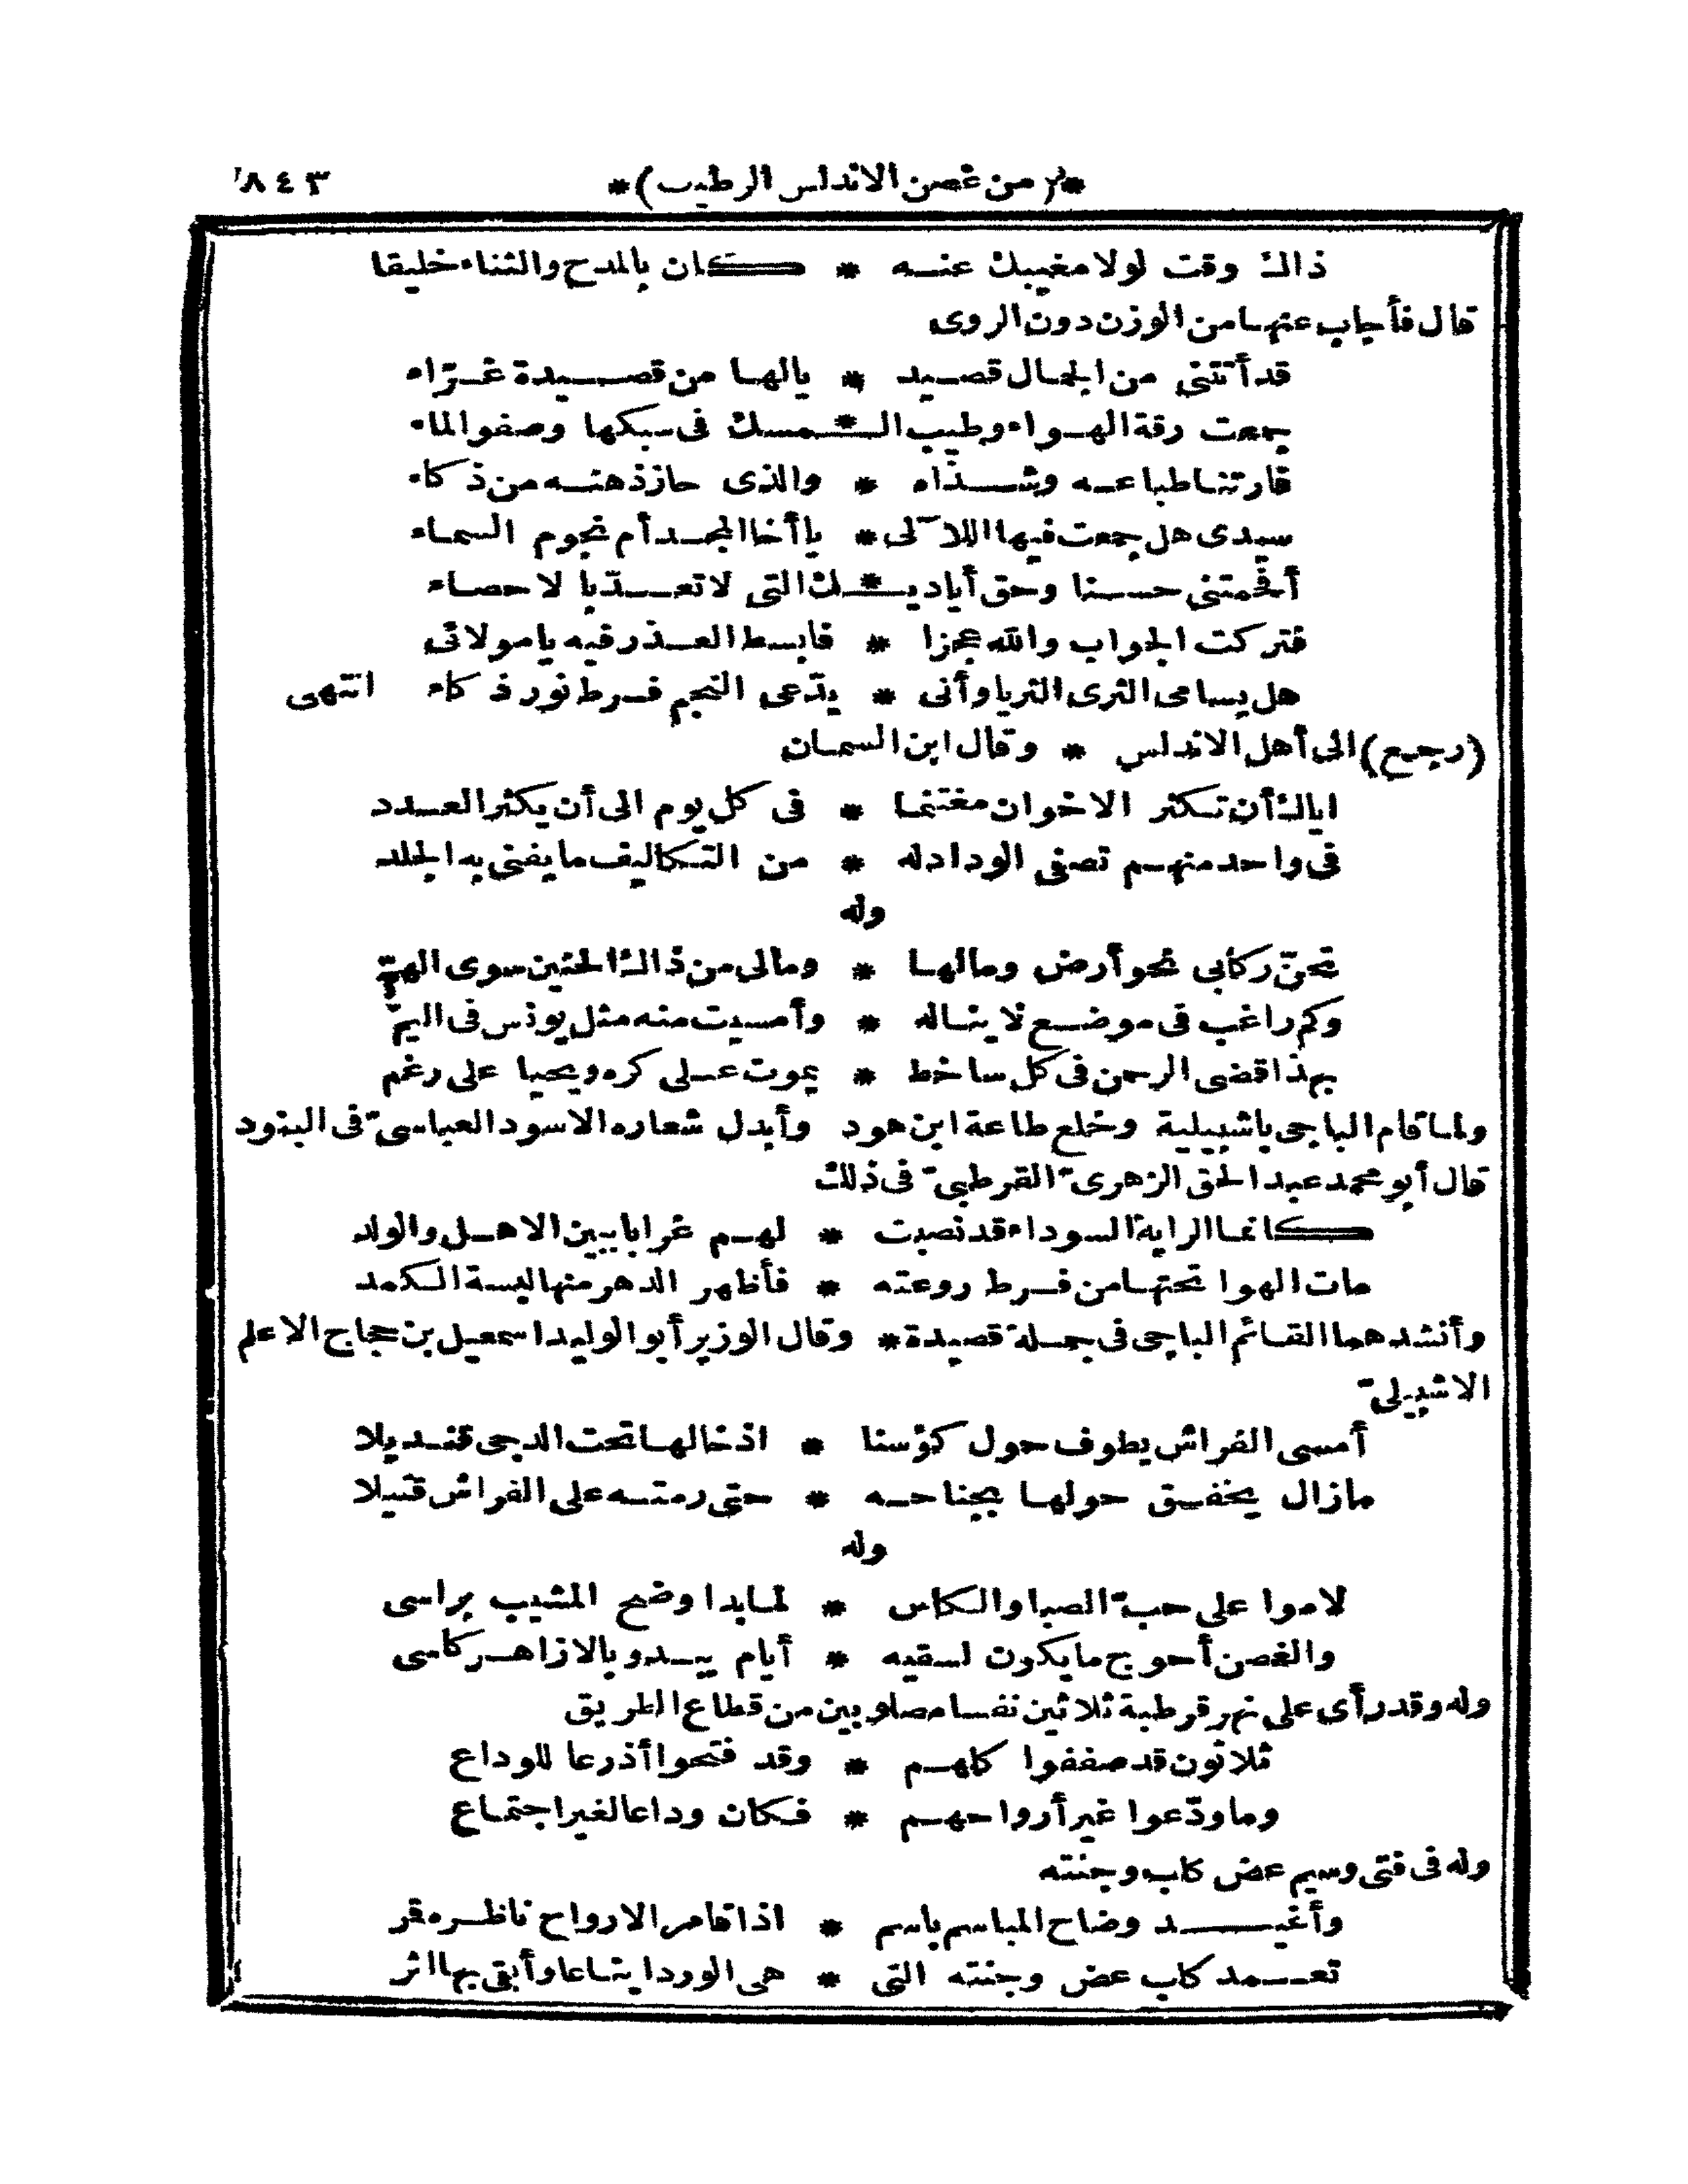 *(من غصن الاندلس الرطيب)* ٨٤٣
ذاك وقت لولا مغيبك عنه * كان بالمدح والثناء خليقا
قال فأجاب عنها من الوزن دون الروى
قد أتتنى من الجمال قصيد * يالها من قصيدة غرّاء
جمعت رقة الهواء وطيب الـ * ـمسك فى سبكها وصفو الماء
قارتنا طباعه وشذاه * والذى حاز ذهنه من ذكاء
سيدى هل جمعت فيها اللآلى * يا أخا المجد أم نجوم السماء
أفحمتنى حسنا وحق أياديـ * ـك التى لا تعدّ بالاحصاء
فتركت الجواب والله عجزا * فابسط العذر فيه يا مولائى
هل يسامى الثرى الثريا وأنى * يدّعى النجم فرط نور ذكاء انتهى
(رجع) الى أهل الاندلس * وقال ابن السمان
اياك أن تكثر الاخوان مغتنما * فى كل يوم الى أن يكثر العدد
فى واحد منهم تصفى الوداد له * من التكاليف ما يفنى به الجلد
وله
تحنّ ركابى نحو أرض ومالها * ومالى من ذاك الحنين سوى الهمّ
وكم راغب فى موضع لا يناله * وأمسيت منه مثل يونس فى اليمّ
بهذا قضى الرحمن فى كل ساخط * يموت على كره ويحيا على رغم
ولما قام الباجى باشبيلية وخلع طاعة ابن هود وأبدل شعاره الاسود العباسىّ فى البنود
قال أبو محمد عبد الحق الزهرىّ القرطبىّ فى ذلك
كانما الراية السوداء قد نصبت * لهم غرابا ببين الاهل والولد
مات الهوا تحتها من فرط روعته * فأظهر الدهر منها لبسة الكمد
وأنشدهما القائم الباجى فى جملة قصيدة * وقال الوزير أبو الوليد اسمعيل بن حجاج الاعلم
الاشبيلىّ
أمسى الفراش يطوف حول كؤسنا * اذ خالها تحت الدجى قنديلا
مازال يخفق حولها بجناحه * حتى رمته على الفراش قتيلا
وله
لاموا على حبّ الصبا والكاس * لما بدا وضح المشيب براسى
والغصن أحوج ما يكون لسقيه * أيام يبدو بالازاهر كاسى
وله وقد رأى على نهر قرطبة ثلاثين نفسا مصلوبين من قطاع الطريق
ثلاثون قد صففوا كلهم * وقد فتحوا أذرعا للوداع
وما ودّعوا غير أرواحهم * فكان وداعا لغير اجتماع
وله فى فتى وسيم عض كلب وجنته
وأغيد وضاح المباسم باسم * اذا قامر الارواح ناظره قمر
تعمد كلب عض وجنته التى * هى الورد ايناعا وأبقى بها اثر